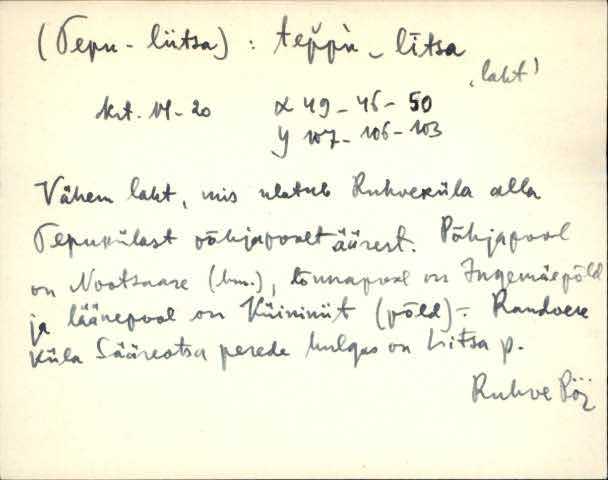 (Tepu-liitsa): tep̆p̀u_lītsa
'laht'
krt. VI-20 x 49-46-50
y 107-106-103
Vähem laht, mis ulatub Ruhveküla alla
Tepukülast põhjapoolt äärest. Põhjapool
on Nootsaare (hm.), lõunapool on Ingemäepõld
ja läänepool on Küininiit (põld).- Randvere
küla Sääreotsa perede hulgas on Liitsa p.
Ruhve Pöi